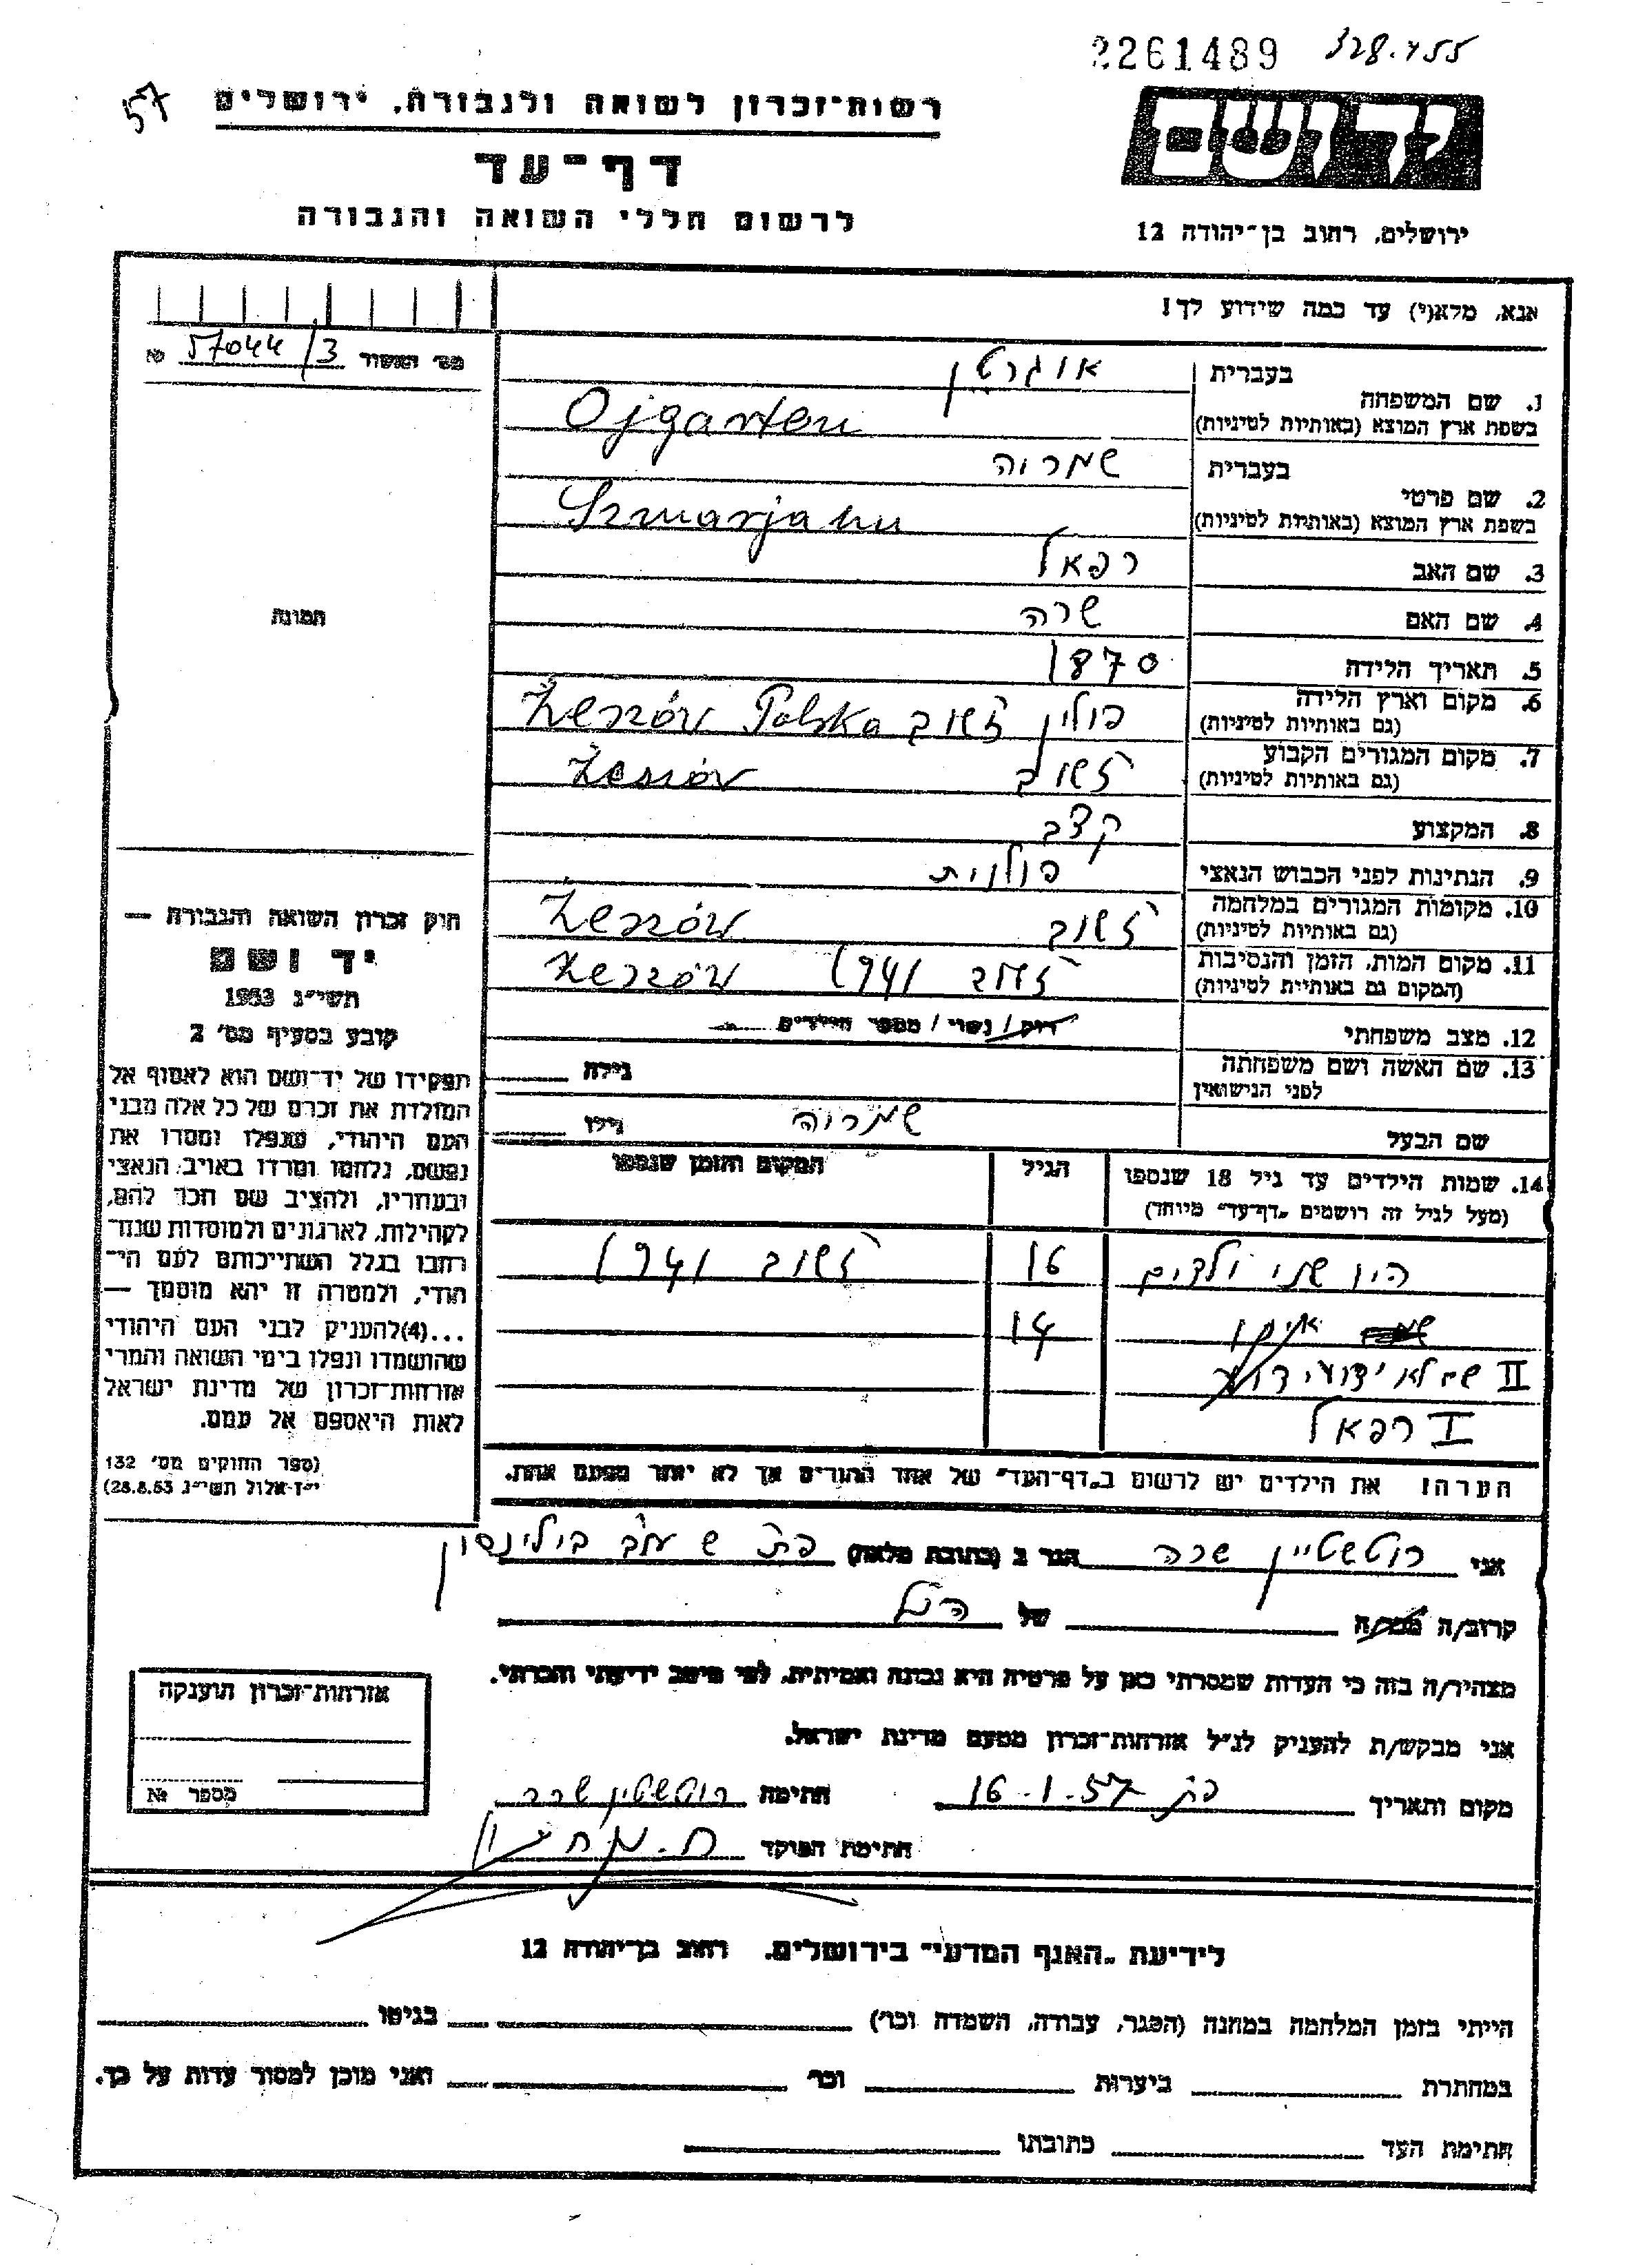 2261489 328.455
57
רשות־זכרון לשואה ולגבורה, ירושלים
יד ושם
דף־עד
לרשום חללי השואה והגבורה
ירושלים, רחוב בן־יהודה 12
אנא, מלא(י) עד כמה שידוע לך!
מס׳ האשור 57044/3 №
בעברית אוגרטן
1. שם המשפחה
בשפת ארץ המוצא (באותיות לטיניות) Ojgarten
בעברית שמריה
2. שם פרטי
בשפת ארץ המוצא (באותיות לטיניות) Szmarjahu
3. שם האב רפאל
4. שם האם שרה
תמונה
5. תאריך הלידה 1870
6. מקום וארץ הלידה
(גם באותיות לטיניות) פולין ז׳שוב Żeszów Polska
7. מקום המגורים הקבוע
(גם באותיות לטיניות) ז׳שוב Żeszów
8. המקצוע קצב
9. הנתינות לפני הכבוש הנאצי פולנית
10. מקומות המגורים במלחמה
(גם באותיות לטיניות) ז׳שוב Żeszów
11. מקום המות, הזמן והנסיבות
(המקום גם באותיות לטיניות) ז׳שוב 1941 Żeszów
12. מצב משפחתי רוק / נשוי / מספר הילדים
13. שם האשה ושם משפחתה
לפני הנישואין גילה
שם הבעל שמריה גילו
14. שמות הילדים עד גיל 18 שנספו
(מעל לגיל זה רושמים „דף־עד״ מיוחד)
הגיל
המקום והזמן שנספו
היו שני ילדים 16 ז׳שוב 1941
14
II שם לא ידוע
I רפאל
הערה! את הילדים יש לרשום ב„דף־העד״ של אחד ההורים אך לא יותר מפעם אחת.
חוק זכרון השואה והגבורה —
יד ושם
תשי״ג 1953
קובע בסעיף מס׳ 2
תפקידו של יד־ושם הוא לאסוף אל
המולדת את זכרם של כל אלה מבני
העם היהודי, שנפלו ומסרו את
נפשם, נלחמו ומרדו באויב הנאצי
ובעוזריו, ולהציב שם וזכר להם,
לקהילות, לארגונים ולמוסדות שנח־
רבו בגלל השתייכותם לעם הי־
הודי, ולמטרה זו יהא מוסמך —
...(4)להעניק לבני העם היהודי
שהושמדו ונפלו בימי השואה והמרי
אזרחות־זכרון של מדינת ישראל
לאות היאספם אל עמם.
(ספר החוקים מס׳ 132
י״ז אלול תשי״ג 28.8.53)
אני רוטשטיין שרה הגר ב (כתובת מלאה) פת ש עב בילינסון
קרוב/ה מכר/ה של הנ״ל
מצהיר/ה בזה כי העדות שמסרתי כאן על פרטיה היא נכונה ואמיתית, לפי מיטב ידיעתי והכרתי.
אני מבקש/ת להעניק לנ״ל אזרחות־זכרון מטעם מדינת ישראל.
מקום ותאריך פת 16.1.57 חתימה רוטשטיין שרה
חתימת הפוקד
אזרחות־זכרון הוענקה
מספר №
לידיעת „האגף המדעי״ בירושלים, רחוב בן־יהודה 12
הייתי בזמן המלחמה במחנה (הסגר, עבודה, השמדה וכו׳) בגיטו
במחתרת ביערות וכו׳ ואני מוכן למסור עדות על כך.
חתימת העד כתובתו